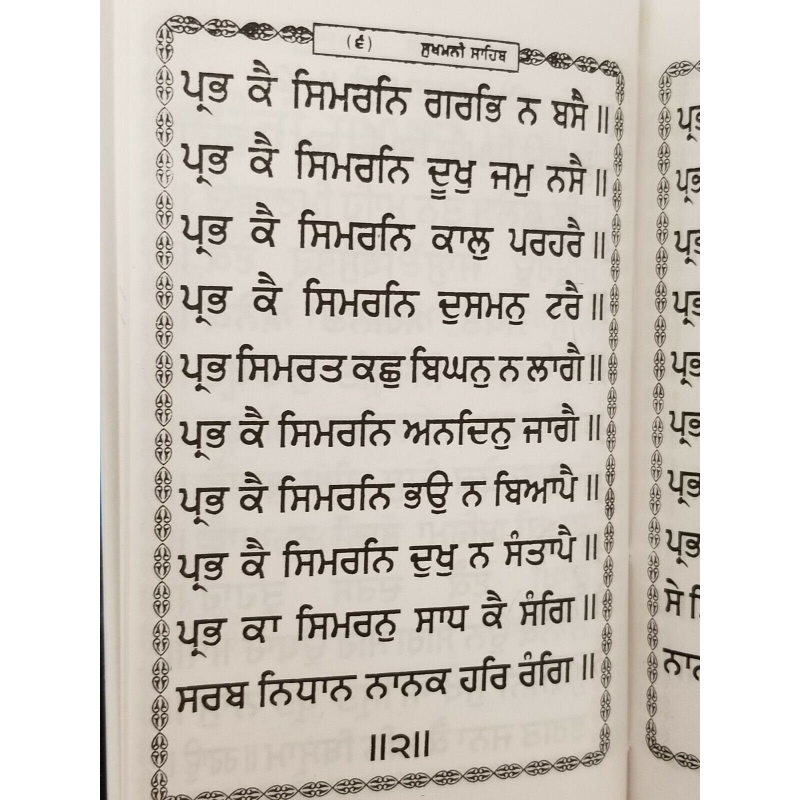 (੬) ਸੁਖਮਨੀ ਸਾਹਿਬ
ਪ੍ਰਭ ਕੈ ਸਿਮਰਨਿ ਗਰਭਿ ਨ ਬਸੈ ॥
ਪ੍ਰਭ ਕੈ ਸਿਮਰਨਿ ਦੂਖੁ ਜਮੁ ਨਸੈ ॥
ਪ੍ਰਭ ਕੈ ਸਿਮਰਨਿ ਕਾਲੁ ਪਰਹਰੈ ॥
ਪ੍ਰਭ ਕੈ ਸਿਮਰਨਿ ਦੁਸਮਨੁ ਟਰੈ ॥
ਪ੍ਰਭ ਸਿਮਰਤ ਕਛੁ ਬਿਘਨੁ ਨ ਲਾਗੈ ॥
ਪ੍ਰਭ ਕੈ ਸਿਮਰਨਿ ਅਨਦਿਨੁ ਜਾਗੈ ॥
ਪ੍ਰਭ ਕੈ ਸਿਮਰਨਿ ਭਉ ਨ ਬਿਆਪੈ ॥
ਪ੍ਰਭ ਕੈ ਸਿਮਰਨਿ ਦੁਖੁ ਨ ਸੰਤਾਪੈ ॥
ਪ੍ਰਭ ਕਾ ਸਿਮਰਨੁ ਸਾਧ ਕੈ ਸੰਗਿ ॥
ਸਰਬ ਨਿਧਾਨ ਨਾਨਕ ਹਰਿ ਰੰਗਿ ॥
॥੨॥